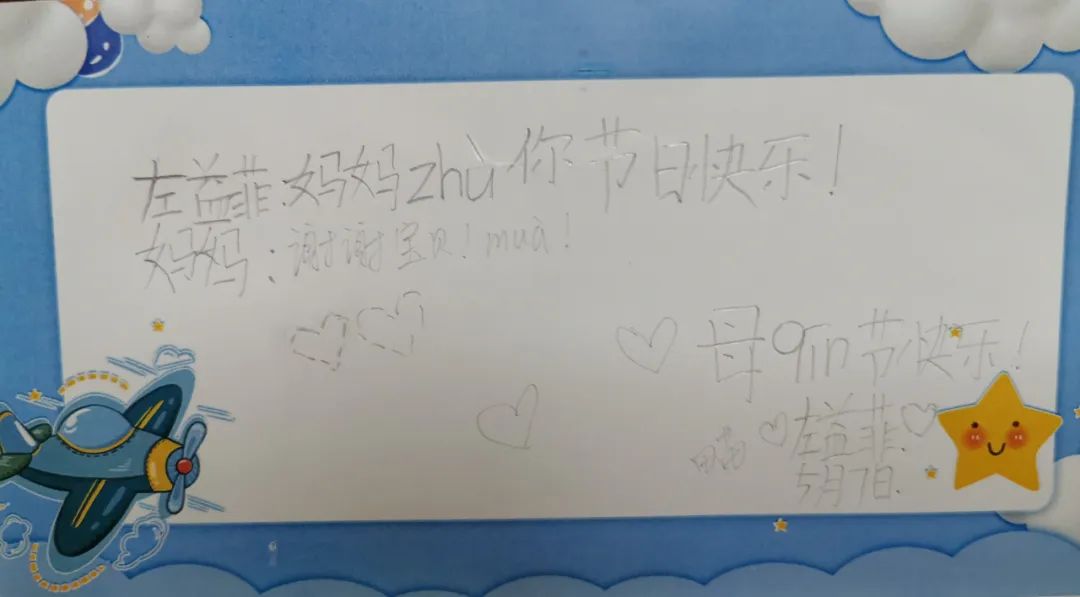 左益菲:妈妈zhù你节日快乐!
妈妈:谢谢宝贝!mua!
母qīn节快乐!
左益菲.
5月7日.